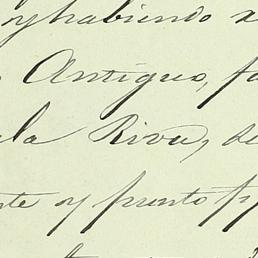 y habiendo
Antiguo,
la Riva, de
te y pronto